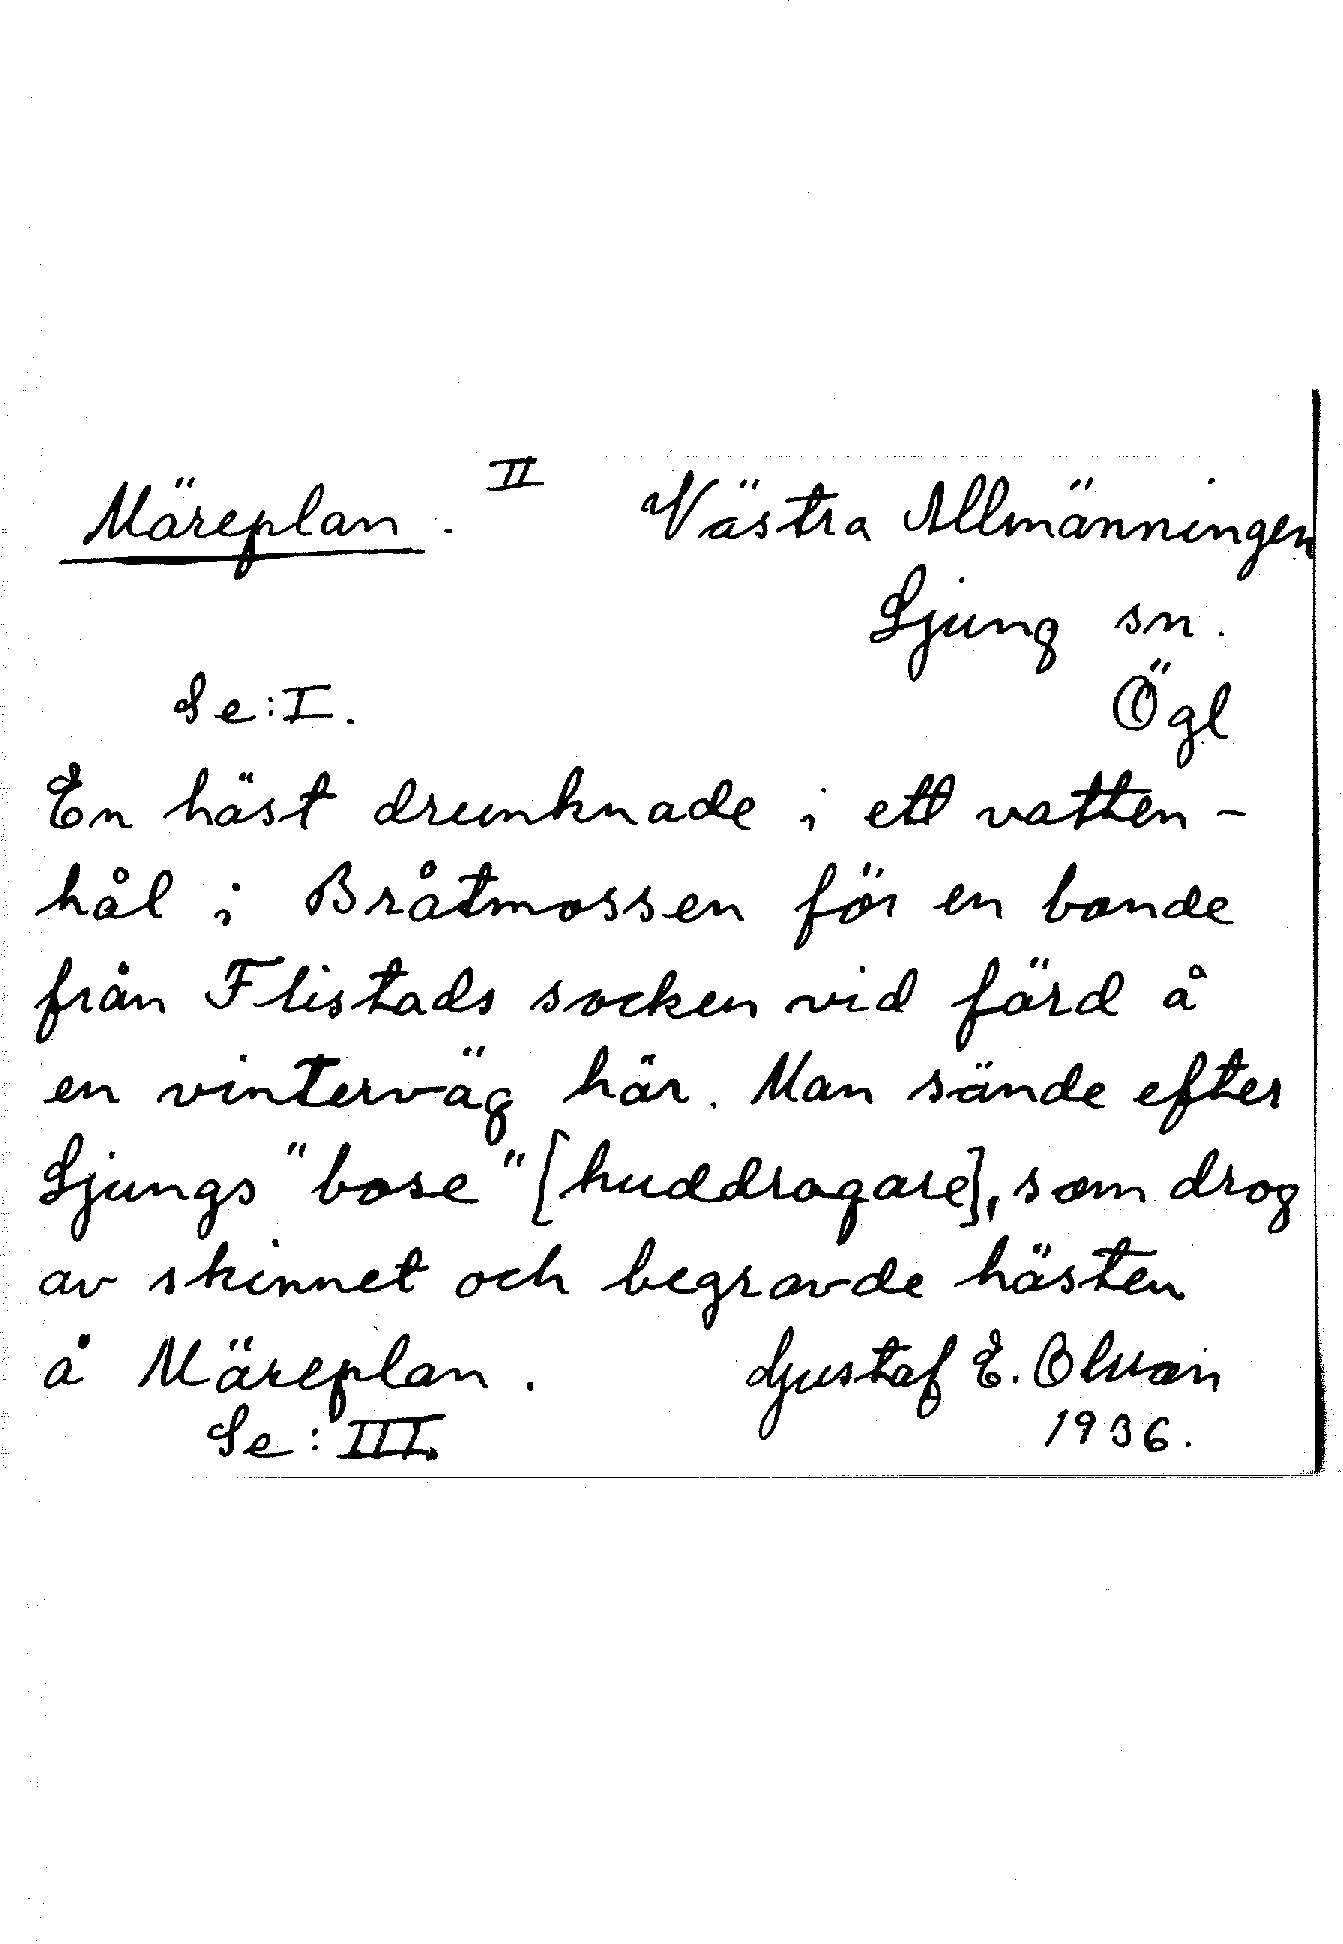 Märeplan. II Västra Allmänningen
Ljung sn.
Se: I. Ögl
En häst drunknade i ett vatten-
hål i Bråtmossen för en bonde
från Flistads socken vid färd å
en vinterväg här. Man sände efter
Ljungs "bose" [huddragare], som drog
av skinnet och begravde hästen
å Märeplan. Gustaf E. Olsson
Se: III. 1936.